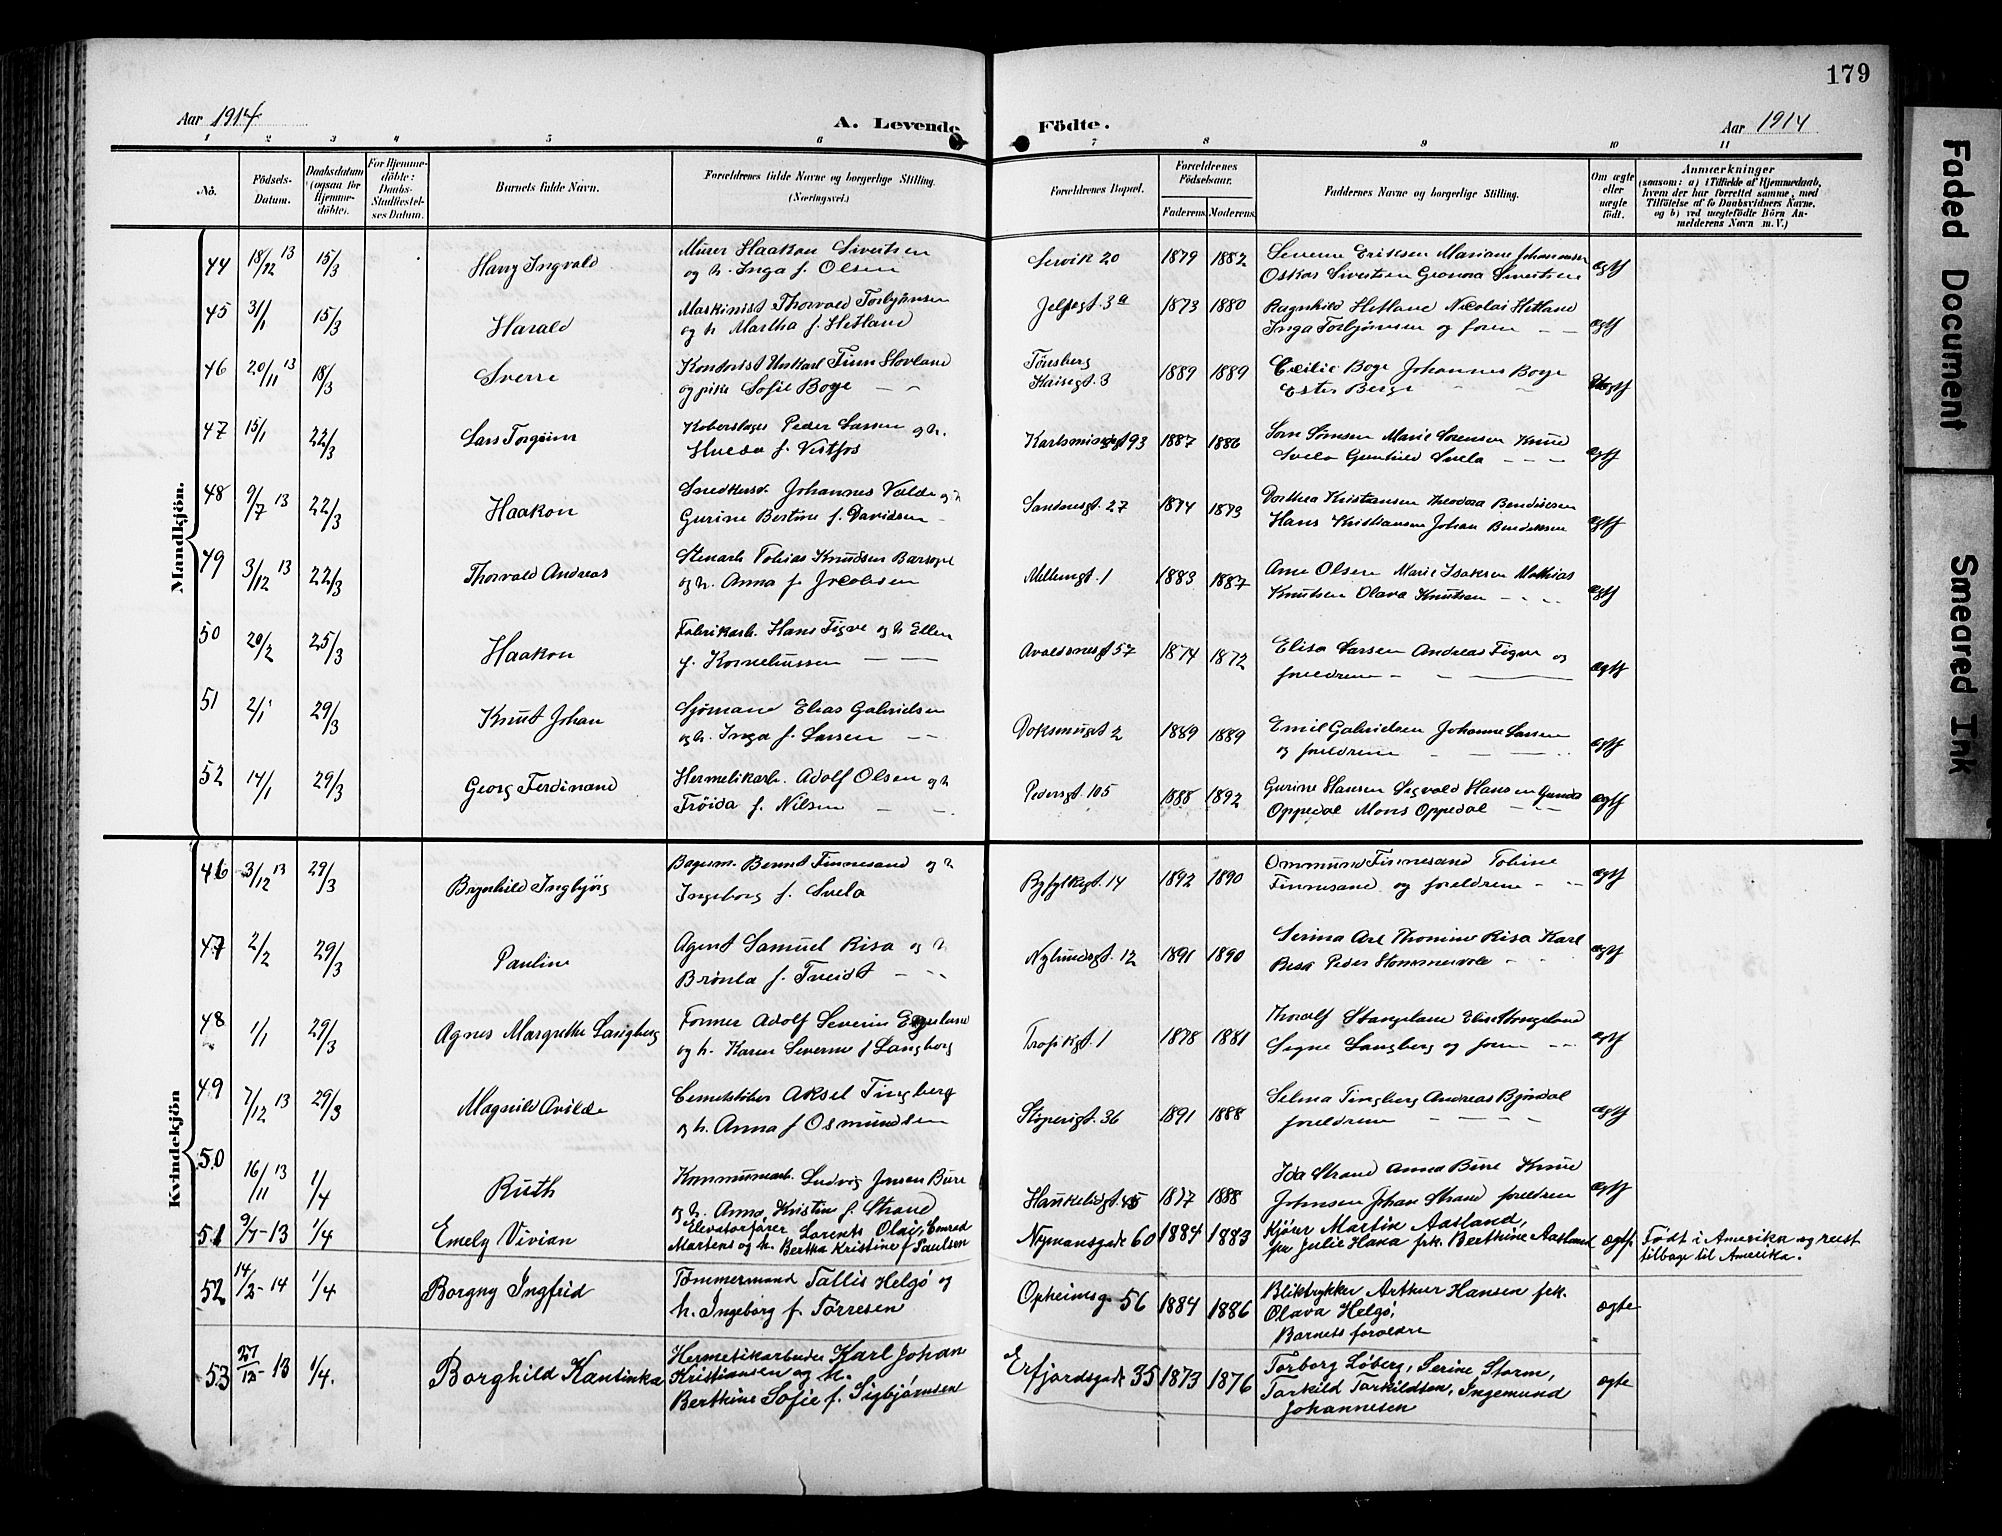 179
Aar 1914
A. Levende Födte.
Aar 1914
1 2 3 4 5 6 7 8 9 10 11
No.
Födsels-Datum.
Daabsdatum (ogsaa for Hjemme-döbte).
For Hjemme-döbte: Daabs-Stadfæstel-ses Datum.
Barnets fulde Navn.
Forældrenes fulde Navne og borgerlige Stilling.
(Næringsvei.)
Forældrenes Bopæl.
Forældrenes Födselsaar.
Faderens. Moderens.
Faddernes Navne og borgerlige Stilling.
Om ægte eller uægte födt.
Anmærkninger
(saasom: a) i Tilfælde af Hjemmedaab, hvem der har forrettet samme, med Tilföielse af to Daabsvidners Navne, og b) ved uægtefödte Börn An-melderens Navn m. V.)
Mandkjön.
44 18/12 13 15/3 Harry Ingvald Murer Haakon Sivertsen
og h. Inga f. Olsen 20 1879 1882 Severine Eriksen Mariane Johannesen
Oskar Sivertsen Sivertsen ægtf
45 31/1 15/3 Harald Maskinist Thorvald Torbjörnsen
og h. Martha f. Hetland Jelsegt. 3a 1873 1880 Ragnhild Hetland Nicolai Hetland
Inga Torbjörnsen og foren ægtf
46 20/11 13 18/3 Sverre Finn Hovland
og pike Sofie Boge 3 1889 1889 Cecilie Boge Johannes Boge
Ester Berge
47 15/1 22/3 Lars Torgeim Peder Larsen og h.
Hulda f. Vistfos Karlsminnegt 93 1887 1886 Sörn Sörnsen Marie Sörensen Knud
Svela Gunhild Svela ægtf
48 9/7 13 22/3 Haakon Snedkersv. Johannes Valde og h
Gurine Bertine f. Davidsen Sandnesgt. 27 1874 1873 Dorthea Kristiansen Theodora Bendiksen
Hans Kristiansen Johan Bendiksen ægtf
49 3/12 13 22/3 Thorvald Andreas Stenarb. Tobias Knudsen
og h. Anna f. Jacobsen Mellumgt. 1 1883 1887 Arne Olsen Marie Isaksen Mathias
Knutsen Olava Knutsen ægtf
50 20/2 25/3 Haakon Fabrikarb. Hans Tigve og h Ellen
f. Korneliussen Avaldsnesgt 57 1874 1872 Elisa Larsen Andreas Tigve og
foreldrene ægtf
51 2/1 29/3 Knut Johan Sjömand Elias Gabrielsen
og h. Inga f. Larsen 2 1889 1889 Emil Gabrielsen Johanne Larsen
og foreldrene ægtf
52 14/1 29/3 Georg Ferdinand Hermetikarb. Adolf Olsen og h
Tröida f. Nilsen Pedersgt. 105 1888 1892 Gurine Hansen Sigvald Hansen Gunda
Oppedal Mons Oppedal ægtf
Kvindekjön
46 3/12 13 29/3 Brynhild Ingbjörg Bernt Finnesand og h
Ingeborg f. Svela Ryfylkegt. 14 1892 1890 Ommund Finnesand Tobine
Finnesand og foreldrene ægtf
47 2/2 29/3 Pauline Agent Samuel Risa og h
Brönla f. Tveidt Nylundsgt. 12 1891 1890 Serina Thomine Risa Karl
Risa Peder ægtf
48 1/1 29/3 Agnes Margrethe Langberg Former Adolf Severin
og h. Karen Severine f Langberg 1 1878 1881 Thoralf Stangeland Elise Stangeland
Signe Langberg og foren ægtf
49 7/12 13 29/3 Magnild Arilde Aksel Tingberg
og h. Anna f Osmundsen Støperigt. 36 1891 1888 Selma Tingberg Andreas Bjöndal
foreldrene ægtf
50 16/11 13 1/4 Ruth Kommunearb. Ludvig Bure
og h. Anna Kristine f. Strand Haukeligt. 45 1888 Ida Strand Anna Bure Knud
Johnsen Johan Strand foreldrene ægtf
51 9/7-13 1/4 Emely Vivian Elevatorfører Lorents Olaf Emred
Martens og h. Bertha Kristine f Paulsen Nymansgade 60 1884 1883 Kjører Martin Aasland,
frø Julie Hana frk. Berthine Aasland ægtf. Født i Amerika og reist
tilbage til Amerika.
52 14/2-14 1/4 Borgny Ingfrid Tømmermand Tallis Helgø og
h. Ingeborg f. Tørresen Opheimsg. 56 1884 1886 Bliktrykker Arthur Hansen frk.
Olava Helgø,
Barnets foreldre ægte
53 27/12-13 1/4. Borghild Kantinka Hermetikarbeider Karl Johan
Kristiansen og h.
Berthine Sofie f. Sigbjørnsen Erfjordsgade 35 1873 1876 Torborg Løberg, Serine Storm,
Torkild Torkildsen, Ingemund
Johannesen ægte
Faded Document
Smeared Ink